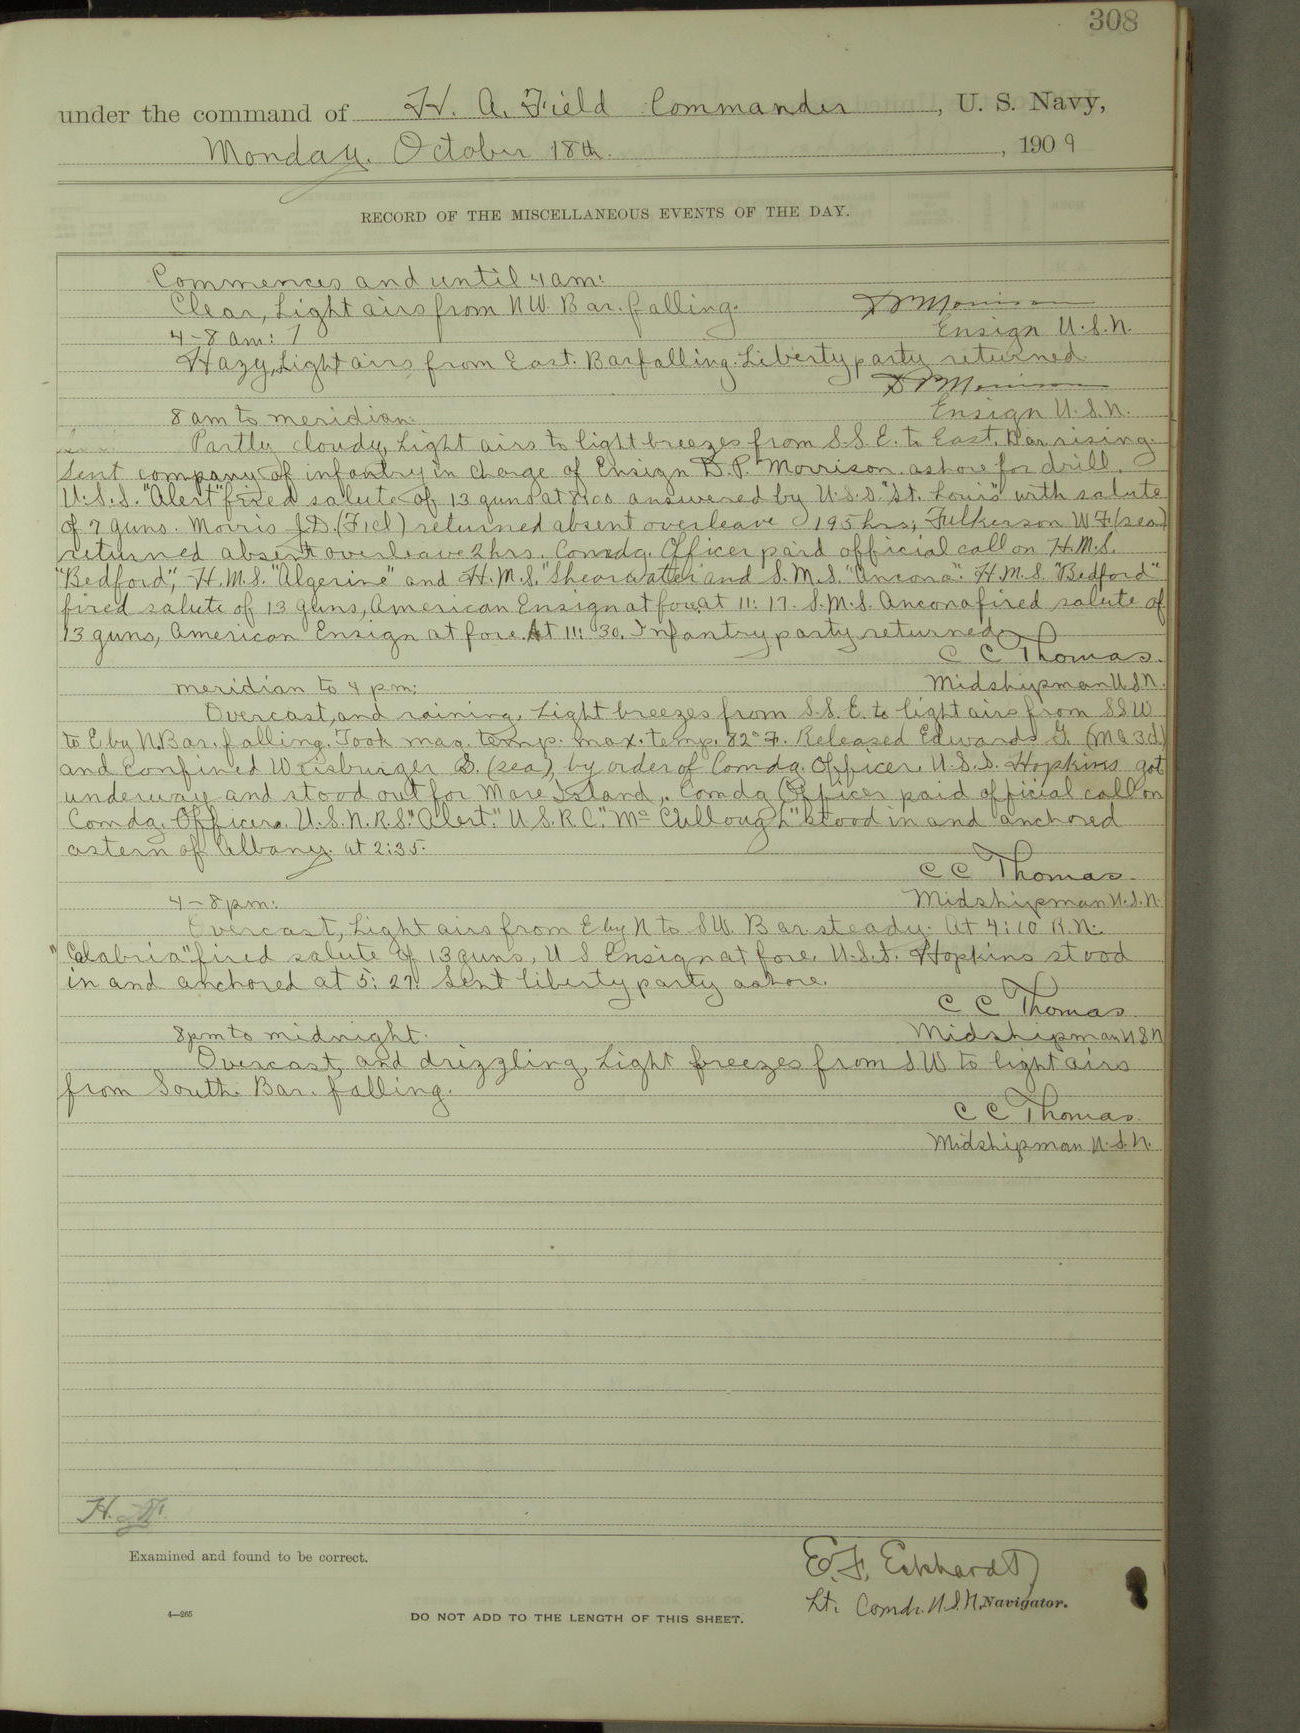 308
under the command of H. A. Field Commander, U. S. Navy,
Monday. October 18th., 1909
RECORD OF THE MISCELLANEOUS EVENTS OF THE DAY.
Commences and until 4 am:
Clear, Light airs from NW. Bar. falling. D P Morrison
4-8 am: Ensign U.S.N.
Hazy, Light airs from East. Bar falling. Liberty party returned
D P Morrison
8 am to meridian: Ensign U.S.N.
Partly cloudy, Light airs to light breezes from S.S.E. to East. Bar rising.
Sent company of infantry in charge of Ensign D.P. Morrison ashore for drill.
U.S.S. "Alert" fired salute of 13 guns at 8:00 answered by U.S.S. "St. Louis" with salute
of 7 guns. Morris J.D. (F1cl) returned absent overleave 195 hrs; Fulkerson W.F. (sea)
returned absent overleave 2 hrs. Comdg. Officer paid official call on H.M.S.
"Bedford", H.M.S. "Algerine" and H.M.S. "Shearwater" and S.M.S. "Ancona". H.M.S. "Bedford"
fired salute of 13 guns, American Ensign at fore at 11:17. S.M.S. Ancona fired salute of
13 guns, American Ensign at fore. At 11:30. Infantry party returned.
C C Thomas.
meridian to 4 pm: Midshipman U.S.N.
Overcast, and raining, Light breezes from S.S.E. to light airs from SSW
to E by N. Bar. falling. Took mag. temp. max. temp. 82° F. Released Edwards G. (Ma 3d)
and confined Weisburger S. (sea), by order of Comdg. Officer. U.S.S. Hopkins got
underway and stood out for Mare Island. Comdg Officer paid official call on
Comdg. Officers. U.S.N.R.S. "Alert." U.S.R.C. "Mc Cullough" stood in and anchored
astern of Albany. at 2:35.
C C Thomas.
4-8 pm: Midshipman U.S.N.
Overcast, Light airs from E by N to SW. Bar steady. At 4:10 R.N.
"Calabria" fired salute of 13 guns, U S Ensign at fore. U.S.S. Hopkins stood
in and anchored at 5:27. Sent liberty party ashore.
C C Thomas
8pm to midnight. Midshipman U S N
Overcast, and drizzling, Light breezes from SW to light airs
from South. Bar. falling.
C C Thomas.
Midshipman U.S.N.
H.
Examined and found to be correct.
E.F. Eckhardt
Lt. Comdr. U.S.N. Navigator.
4—265
DO NOT ADD TO THE LENGTH OF THIS SHEET.